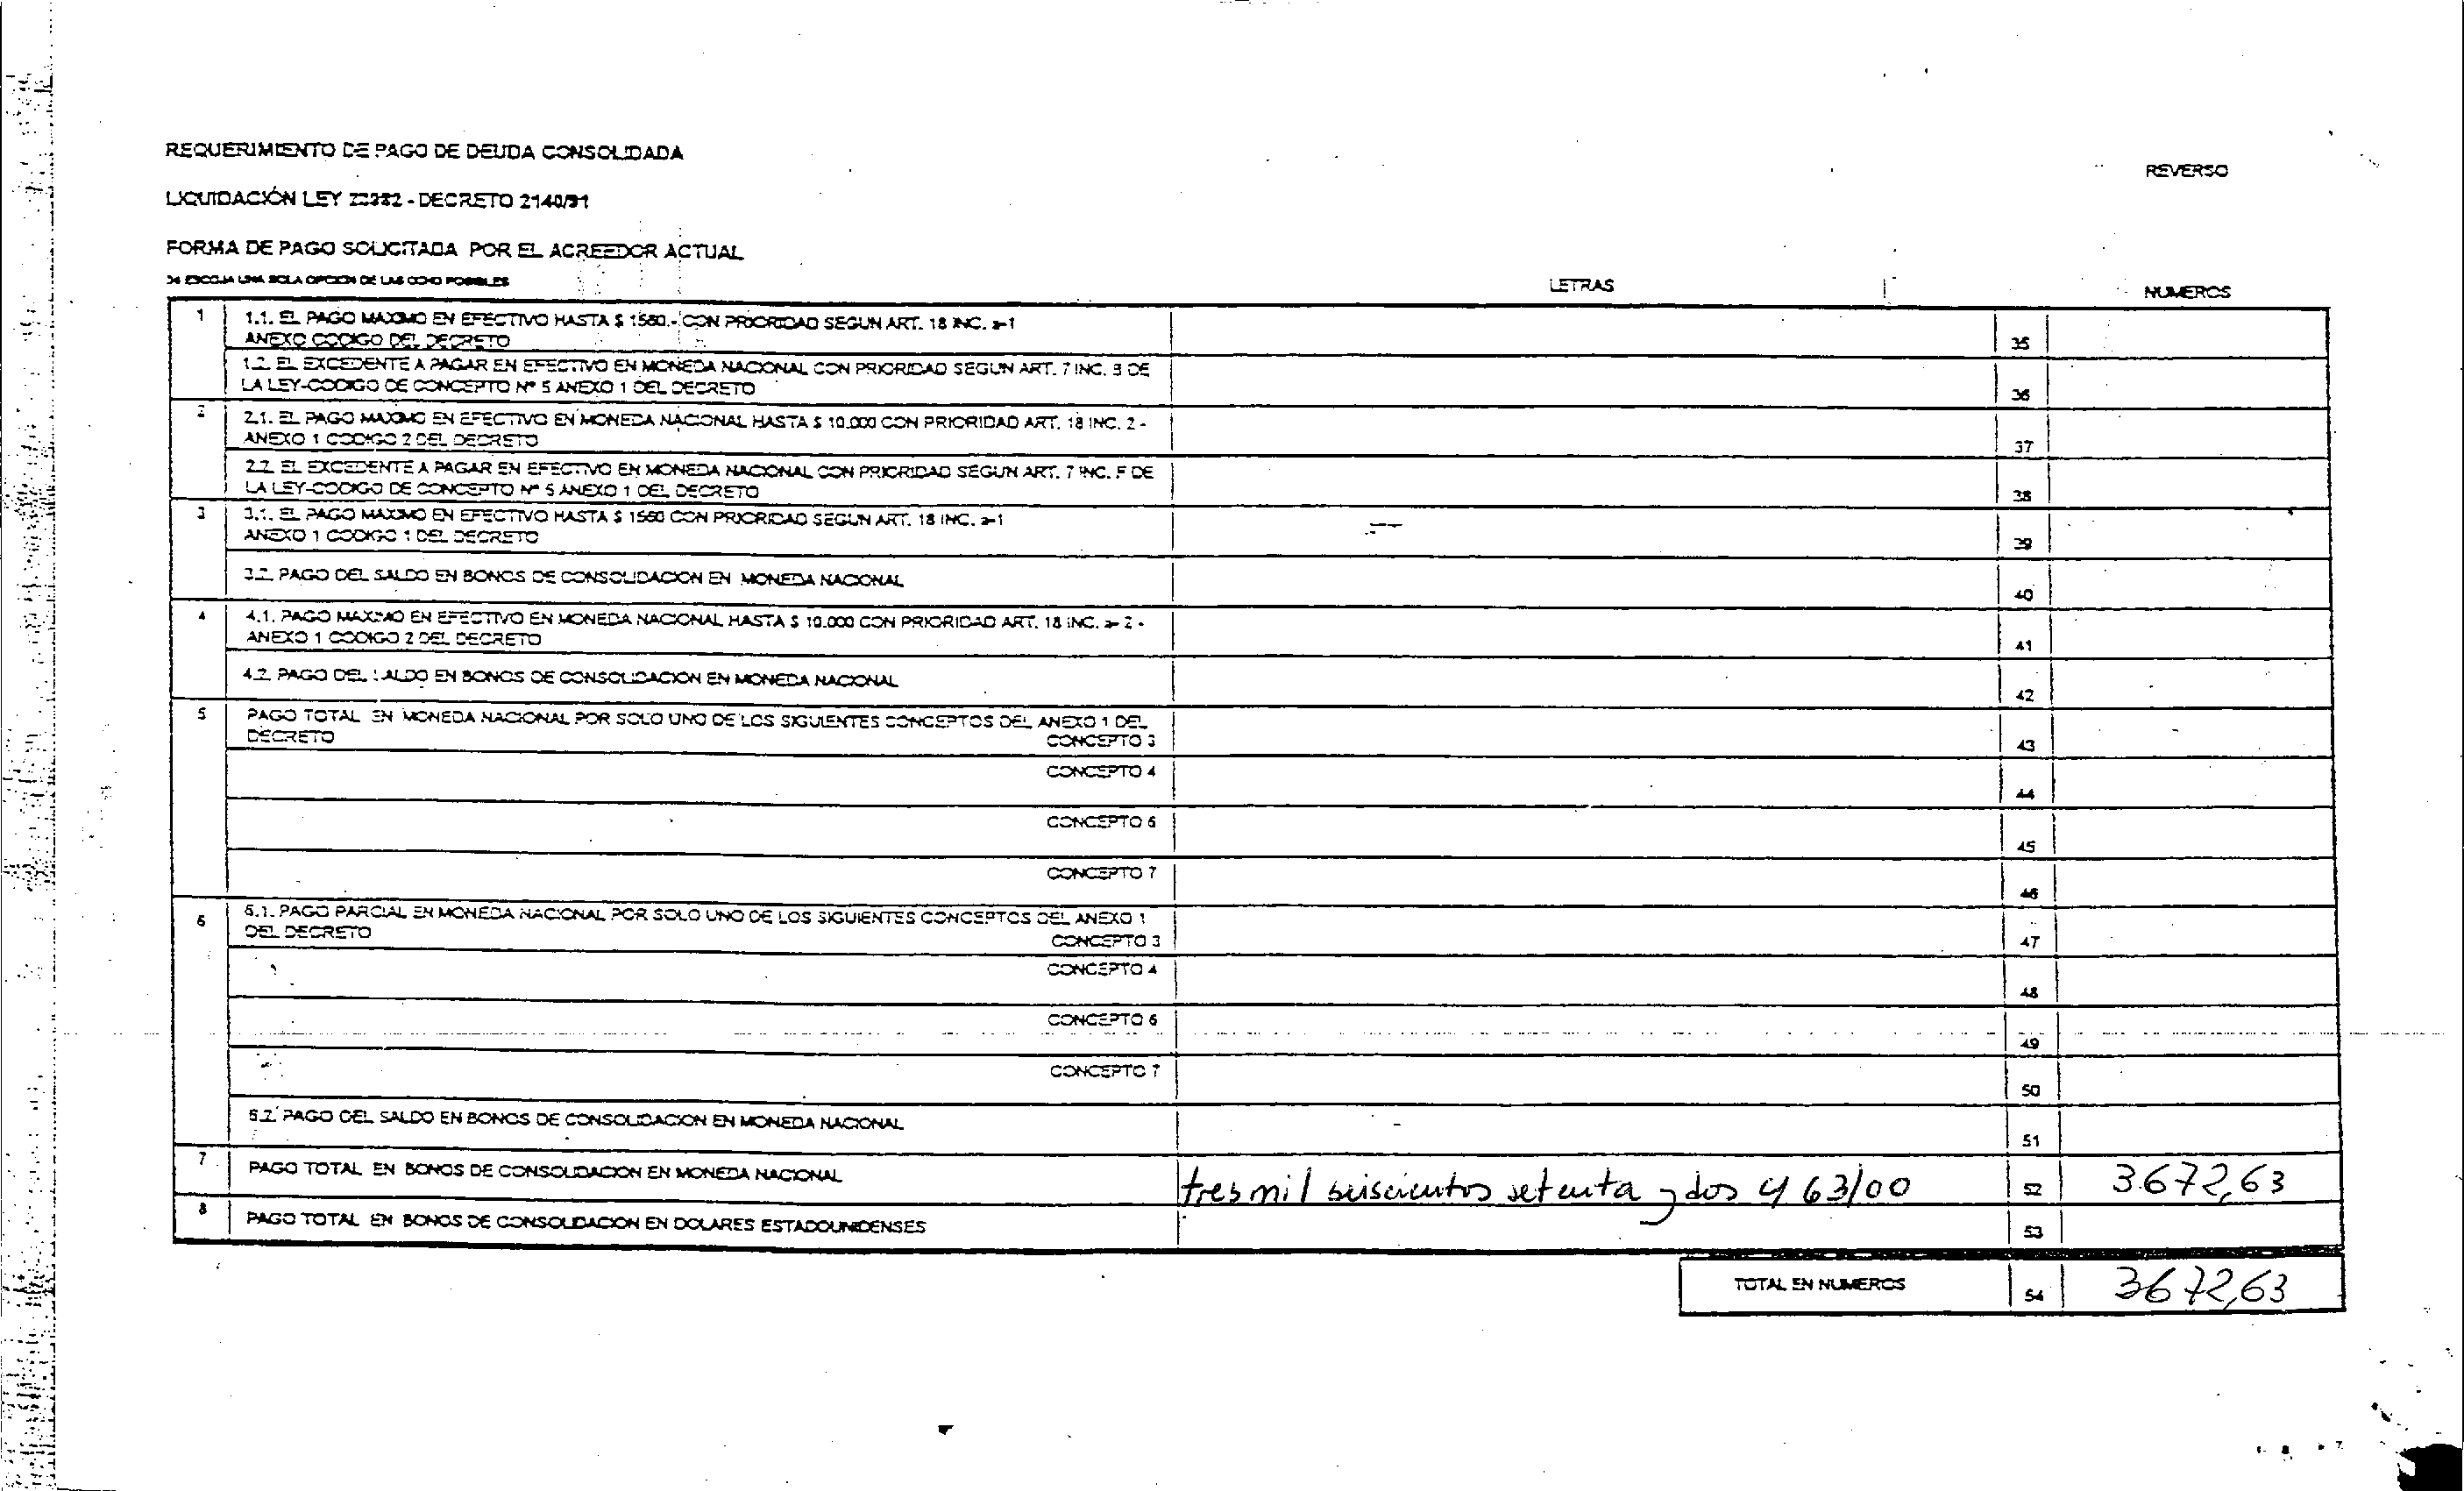 REQUERIMIENTO DE PAGO DE DEUDA CONSOLIDADA
REVERSO
LIQUIDACIÓN LEY 22382 - DECRETO 2140/91
FORMA DE PAGO SOLICITADA POR EL ACREEDOR ACTUAL
34 ESCOJA UNA SOLA OPCION DE LAS OCHO POSIBLES
LETRAS
NUMEROS
1 1.1. EL PAGO MAXIMO EN EFECTIVO HASTA $ 1580.- CON PRIORIDAD SEGUN ART. 18 INC. a-1
ANEXO CODIGO DEL DECRETO
35
1.2. EL EXCEDENTE A PAGAR EN EFECTIVO EN MONEDA NACIONAL CON PRIORIDAD SEGUN ART. 7 INC. B DE
LA LEY-CODIGO DE CONCEPTO Nº 5 ANEXO 1 DEL DECRETO
36
2 2.1. EL PAGO MAXIMO EN EFECTIVO EN MONEDA NACIONAL HASTA $ 10.000 CON PRIORIDAD ART. 18 INC. 2 -
ANEXO 1 CODIGO 2 DEL DECRETO
37
2.2. EL EXCEDENTE A PAGAR EN EFECTIVO EN MONEDA NACIONAL CON PRIORIDAD SEGUN ART. 7 INC. F DE
LA LEY-CODIGO DE CONCEPTO Nº 5 ANEXO 1 DEL DECRETO
38
3 3.1. EL PAGO MAXIMO EN EFECTIVO HASTA $ 1560 CON PRIORIDAD SEGUN ART. 18 INC. a-1
ANEXO 1 CODIGO 1 DEL DECRETO
39
3.2. PAGO DEL SALDO EN BONOS DE CONSOLIDACION EN MONEDA NACIONAL
40
4 4.1. PAGO MAXIMO EN EFECTIVO EN MONEDA NACIONAL HASTA $ 10.000 CON PRIORIDAD ART. 18 INC. a- 2 -
ANEXO 1 CODIGO 2 DEL DECRETO
41
4.2. PAGO DEL SALDO EN BONOS DE CONSOLIDACION EN MONEDA NACIONAL
42
5 PAGO TOTAL EN MONEDA NACIONAL POR SOLO UNO DE LOS SIGUIENTES CONCEPTOS DEL ANEXO 1 DEL
DECRETO CONCEPTO 3
43
CONCEPTO 4
44
CONCEPTO 6
45
CONCEPTO 7
46
6 6.1. PAGO PARCIAL EN MONEDA NACIONAL POR SOLO UNO DE LOS SIGUIENTES CONCEPTOS DEL ANEXO 1
DEL DECRETO CONCEPTO 3
47
CONCEPTO 4
48
CONCEPTO 6
49
CONCEPTO 7
50
6.2. PAGO DEL SALDO EN BONOS DE CONSOLIDACION EN MONEDA NACIONAL
51
7 PAGO TOTAL EN BONOS DE CONSOLIDACION EN MONEDA NACIONAL tres mil seiscientos setenta y dos y 63/00 52 3.672,63
8 PAGO TOTAL EN BONOS DE CONSOLIDACION EN DOLARES ESTADOUNIDENSES 53
TOTAL EN NUMEROS 54 3672,63